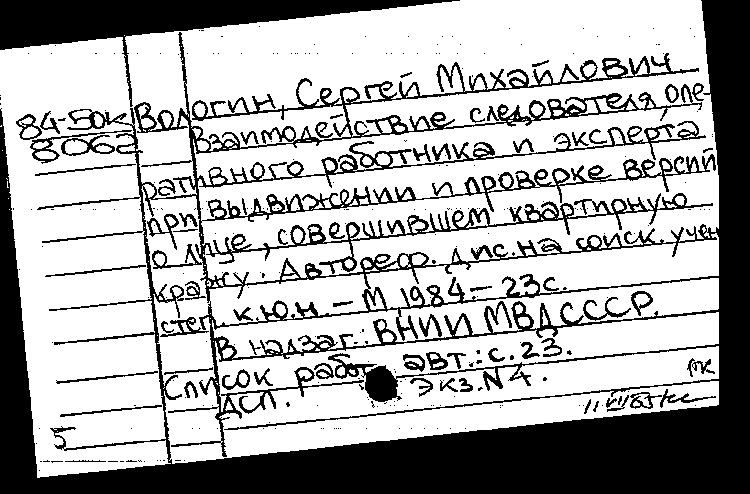 84-50к Вологин, Сергей Михайлович
8062 Взаимодействие следователя, опе-
ративного работника и эксперта
при выдвижении и проверке версий
о лице, совершившем квартирную
кражу. Автореф. дис. на соиск. учен
степ. к.ю.н. - М 1984. - 23с.
В надзаг.: ВНИИ МВД СССР.
Список работ авт.: с. 23.
ДСП. Экз. N 4.
5